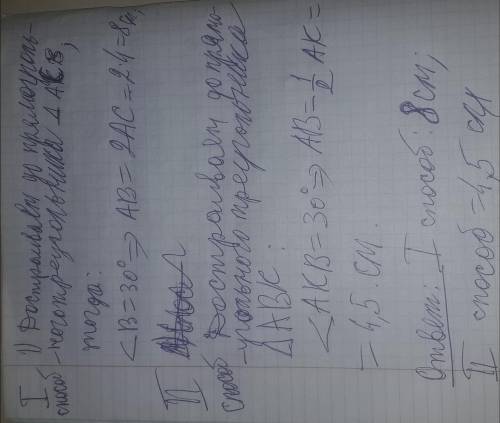 I способ 1) Достраиваем до прямоуголь-
ного треугольника ΔACB,
тогда:
<B=30° => AB = 2AC = 2·4 = 8см,
II
способ Достраиваем до прямо-
угольного треугольника
ΔABK:
<AKB=30° => AB = 1/2 AK =
= 4,5 см.
Ответ: I способ: 8 см;
II способ = 4,5 см